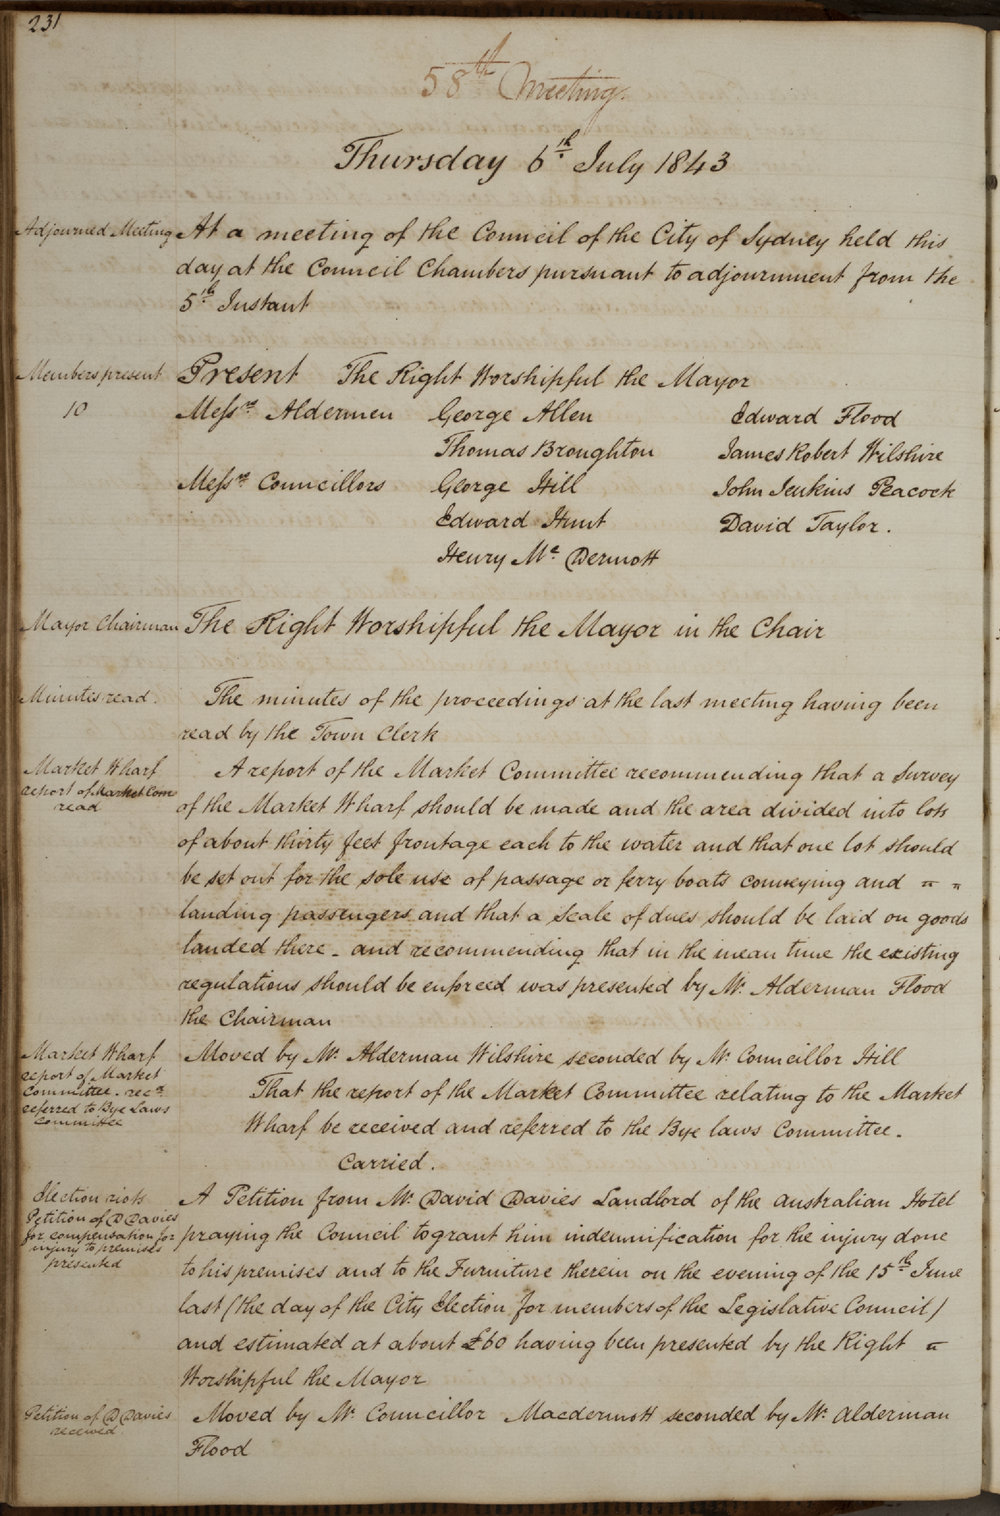 231
58th Meeting.
Thursday 6th July 1843
Adjourned Meeting
At a meeting of the Council of the City of Sydney held this
day at the Council Chambers pursuant to adjournment from the
5th Instant
Members present
10
Present The Right Worshipful the Mayor
Messrs Aldermen George Allen Edward Flood
Thomas Broughton James Robert Wilshire
Messrs Councillors George Hill John Jenkins Peacock
Edward Hunt David Taylor.
Henry Mc Dermott
Mayor Chairman
The Right Worshipful the Mayor in the Chair
Minutes read.
The minutes of the proceedings at the last meeting having been
read by the Town Clerk
Market Wharf
report of Market Com
read
A report of the Market Committee recommending that a Survey
of the Market Wharf should be made and the area divided into lots
of about thirty feet frontage each to the water and that one lot should
be set out for the sole use of passage or ferry boats conveying and = =
landing passengers and that a Scale of dues should be laid on goods
landed there - and recommending that in the mean time the existing
regulations should be enforced was presented by Mr. Alderman Flood
the Chairman
Market Wharf
report of Market
Committee. recd
referred to Bye Laws
Committee
Moved by Mr. Alderman Wilshire seconded by Mr. Councillor Hill
That the report of the Market Committee relating to the Market
Wharf be received and referred to the Bye laws Committee.
Carried.
Election riots
Petition of D Davies
for compensation for
injury to premises
presented
A Petition from Mr. David Davies Landlord of the Australian Hotel
praying the Council to grant him indemnification for the injury done
to his premises and to the Furniture therein on the evening of the 15th June
last (the day of the City Election for members of the Legislative Council)
and estimated at about £60 having been presented by the Right =
Worshipful the Mayor
Petition of D Davies
received
Moved by Mr. Councillor Macdermott seconded by Mr. Alderman
Flood